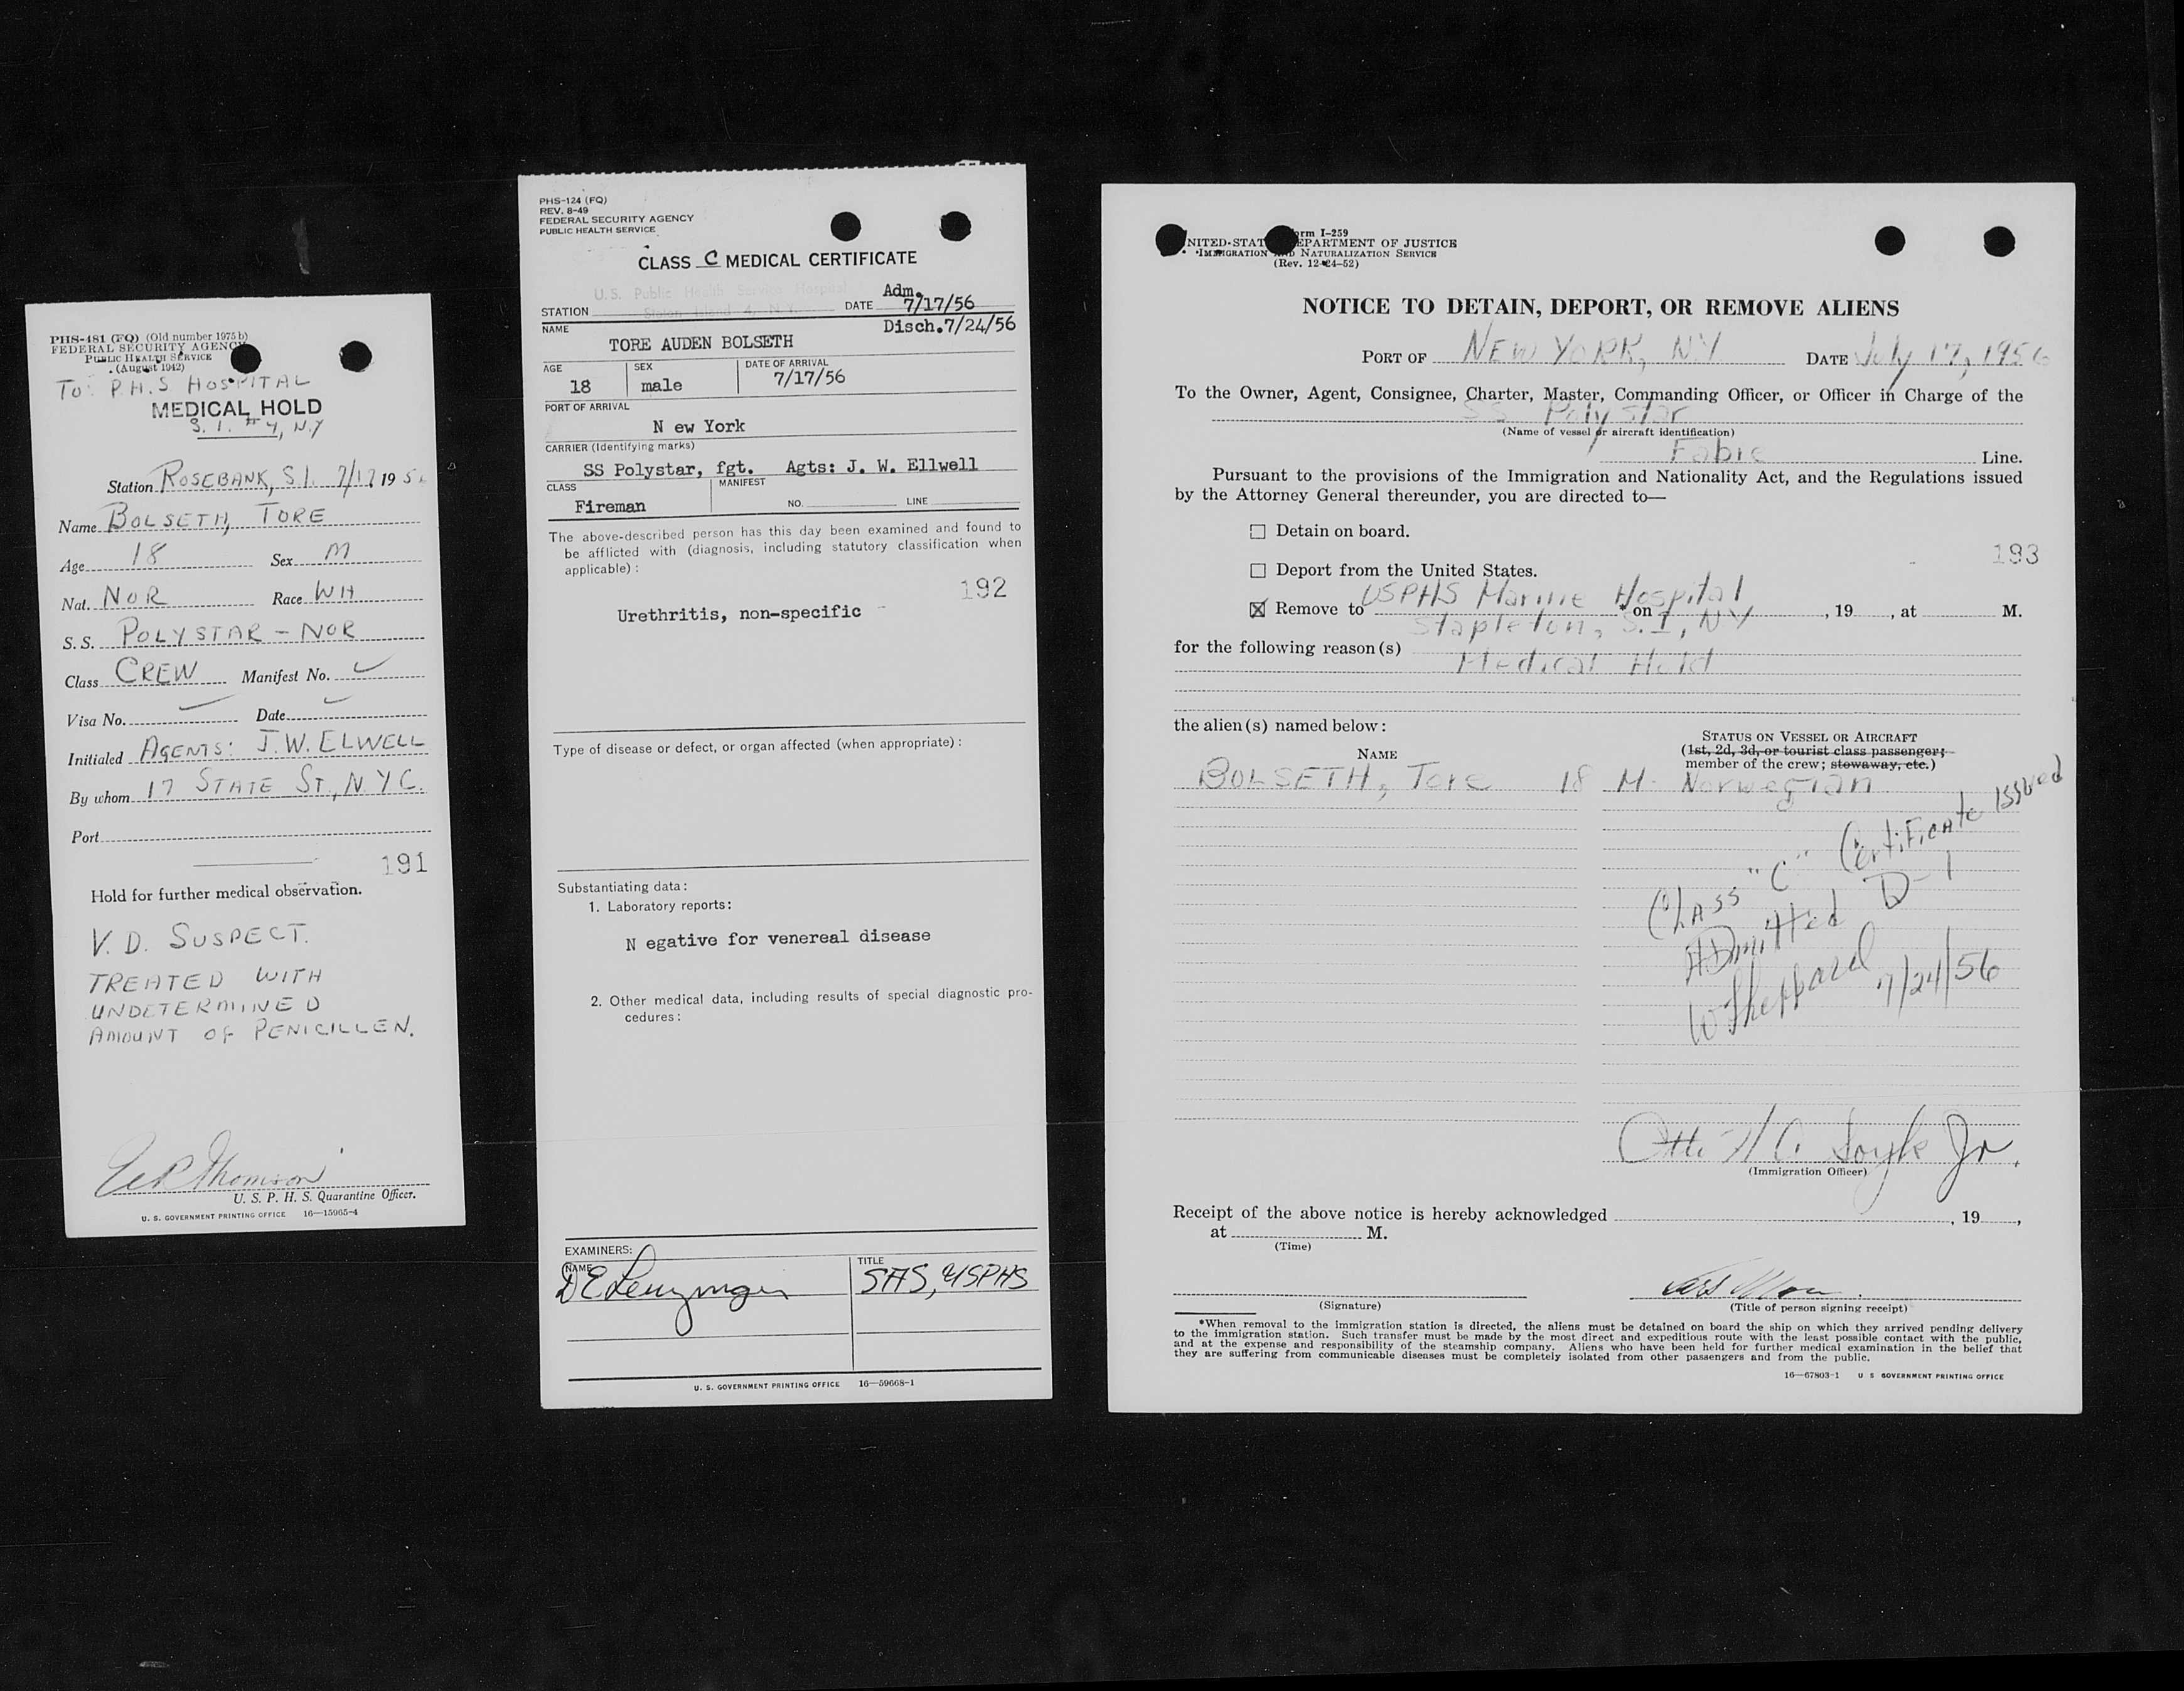 PHS-481 (FQ) (Old number 1975b)
FEDERAL SECURITY AGENCY
PUBLIC HEALTH SERVICE
(August 1942)
TO: P.H.S HOSPITAL
MEDICAL HOLD
S.I. #4, N.Y
Station ROSEBANK, S.I. 7/17 195
Name BOLSETH, TORE
Age 18 Sex M
Nat. NOR Race WH
S.S. POLYSTAR - NOR
Class CREW Manifest No. ✓
Visa No. ✓ Date ✓
Initialed AGENTS: J.W. ELWELL
By whom 17 STATE ST., N.Y.C.
Port
191
Hold for further medical observation.
V.D. SUSPECT.
TREATED WITH
UNDETERMINED
AMOUNT OF PENICILLEN.
Thomson
U. S. P. H. S. Quarantine Officer.
U. S. GOVERNMENT PRINTING OFFICE 16—15965-4
PHS-124 (FQ)
REV. 8-49
FEDERAL SECURITY AGENCY
PUBLIC HEALTH SERVICE
CLASS C MEDICAL CERTIFICATE
U.S. Public Health Service Hospital
Adm.
STATION Staten Island 4, N.Y. DATE 7/17/56
NAME Disch.7/24/56
TORE AUDEN BOLSETH
AGE SEX DATE OF ARRIVAL
18 male 7/17/56
PORT OF ARRIVAL
N ew York
CARRIER (Identifying marks)
SS Polystar, fgt. Agts: J. W. Ellwell
CLASS MANIFEST
Fireman NO. LINE
The above-described person has this day been examined and found to
be afflicted with (diagnosis, including statutory classification when
applicable):
192
Urethritis, non-specific
Type of disease or defect, or organ affected (when appropriate):
Substantiating data:
1. Laboratory reports:
N egative for venereal disease
2. Other medical data, including results of special diagnostic pro-
cedures:
EXAMINERS:
NAME TITLE
D E SAS, USPHS
U. S. GOVERNMENT PRINTING OFFICE 16—59668-1
Form I-259
UNITED STATES DEPARTMENT OF JUSTICE
IMMIGRATION AND NATURALIZATION SERVICE
(Rev. 12-24-52)
NOTICE TO DETAIN, DEPORT, OR REMOVE ALIENS
PORT OF NEW YORK, NY DATE July 17, 1956
To the Owner, Agent, Consignee, Charter, Master, Commanding Officer, or Officer in Charge of the
SS Polystar
(Name of vessel or aircraft identification)
Fabre Line.
Pursuant to the provisions of the Immigration and Nationality Act, and the Regulations issued
by the Attorney General thereunder, you are directed to—
☐ Detain on board.
193
☐ Deport from the United States.
☒ Remove to USPHS Marine Hospital * on , 19 , at M.
Stapleton, S.I, NY
for the following reason(s)
Medical Hold
the alien(s) named below:
STATUS ON VESSEL OR AIRCRAFT
NAME (1st, 2d, 3d, or tourist class passenger;
member of the crew; stowaway, etc.)
BOLSETH, Tore 18 M- Norwegian
Class "C" Certificate issued
Admitted D-1
W Sheppard 7/24/56
Jr.
(Immigration Officer)
Receipt of the above notice is hereby acknowledged , 19 ,
at M.
(Time)
(Signature) (Title of person signing receipt)
*When removal to the immigration station is directed, the aliens must be detained on board the ship on which they arrived pending delivery
to the immigration station. Such transfer must be made by the most direct and expeditious route with the least possible contact with the public,
and at the expense and responsibility of the steamship company. Aliens who have been held for further medical examination in the belief that
they are suffering from communicable diseases must be completely isolated from other passengers and from the public.
16—67803-1 U S GOVERNMENT PRINTING OFFICE